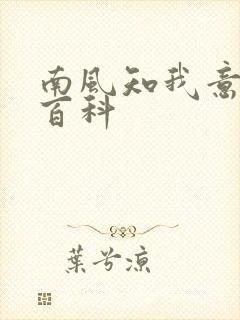 南風知我意
百科
葉兮涼